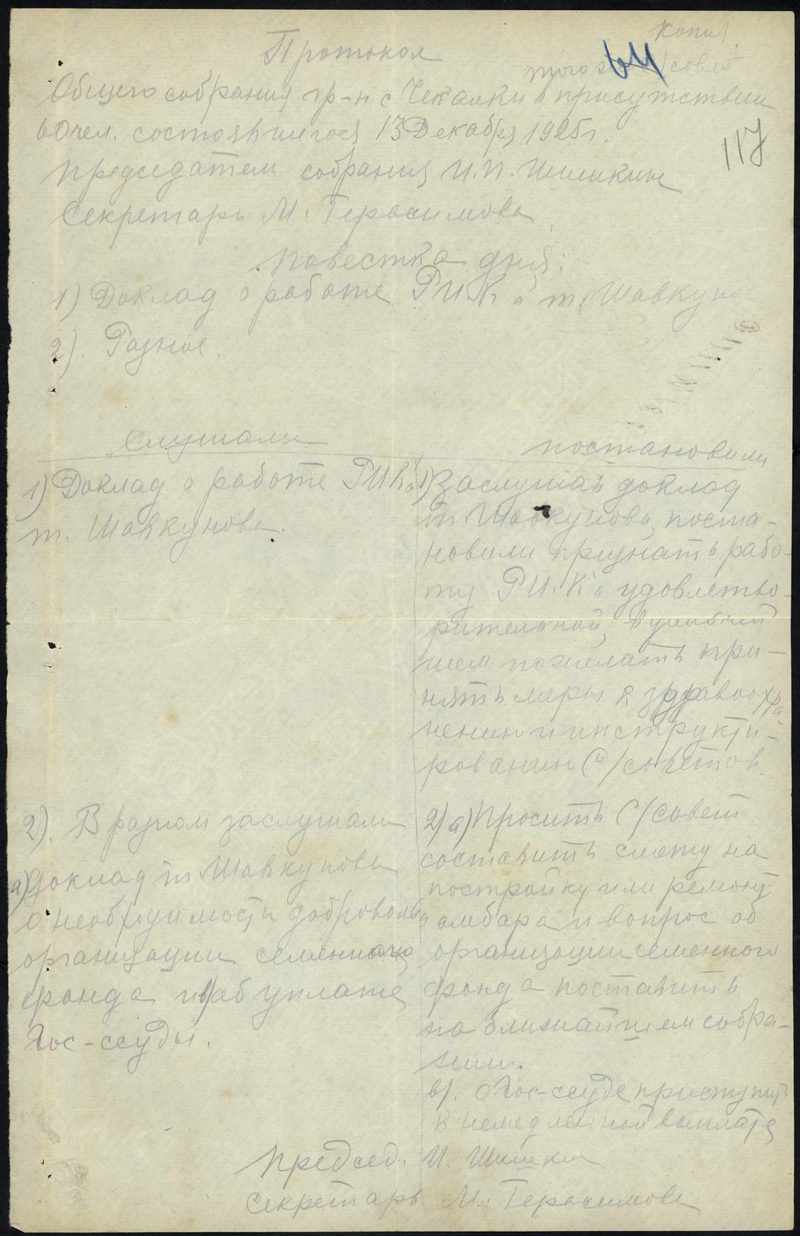 Копия
Протокол
64
Общего собрания гр-н с Чекалки в присутствии
60 чел. состоявшигося 13 Декабря 1925 г.
117
Председатем собрания И.П. Шишкин
Секретарь М. Герасимова
Повестка дня:
1) Доклад о работе РИК'а т. Шавкунова
2). Разное.
Слушали
постановили
1) Доклад о работе РИК'а
т. Шавкунова.
1) Заслушав доклад
т. Шавкунова, поста-
новили признать рабо-
ту Р.И.К'а удовлетво-
рительной,
нием пожелать при-
нять меры к здравоохра-
нению и инструкти-
рованию С/советов.
2). В разном заслушали
а) доклад т. Шавкунова
о необходимости добровольн
организации семенного
фонда и об уплате
Гос-ссуды.
2) а) Просить С/совет
составить смету на
постройку или ремонт
амбара и вопрос об
организации семенного
фонда поставить
на ближайшем собра-
нии.
в). о Гос-ссуде приступит
к немедленной выплате
Председ. И. Шишкин
Секретарь М. Герасимова